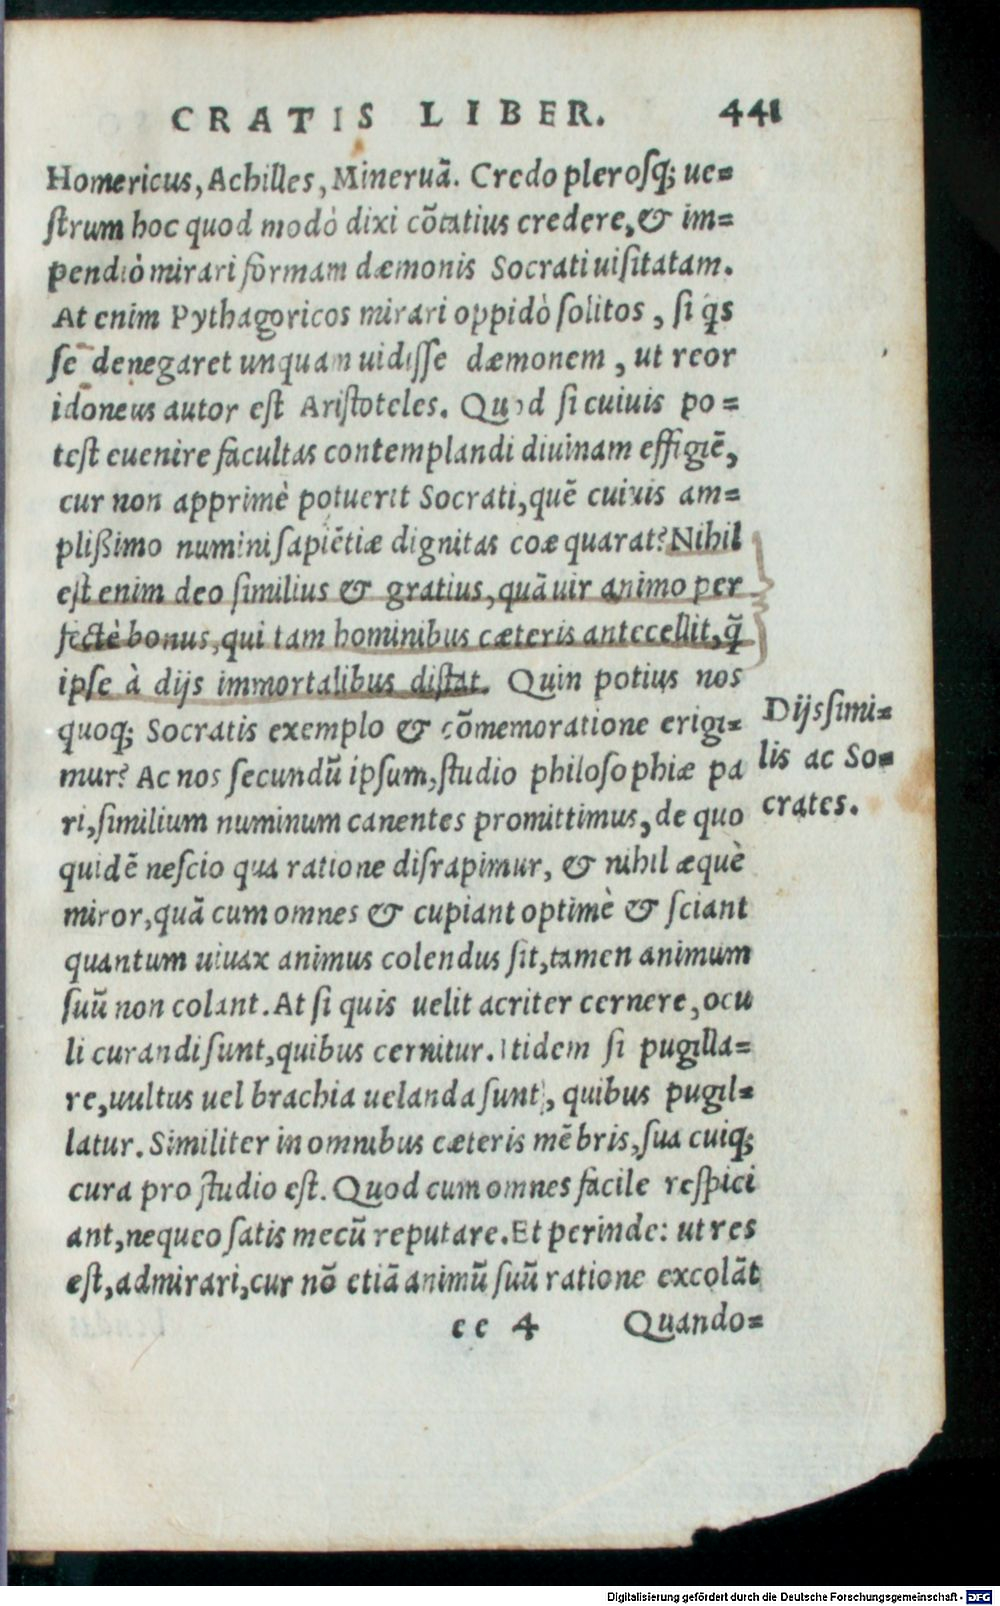 CRATIS LIBER. 441
Homericus, Achilles, Mineruã. Credo plerosq; ue=
ſtrum hoc quod modò dixi cõtatius credere, & im=
pendiò mirari formam dæmonis Socrati uiſitatam.
At enim Pythagoricos mirari oppidò ſolitos, ſi q̃s
ſē denegaret unquam uidiſſe dæmonem, ut reor
idoneus autor eſt Ariſtoteles. Quod ſi cuiuis po=
teſt euenire facultas contemplandi diuinam effigiẽ,
cur non apprimè potuerit Socrati, quẽ cuiuis am=
plißimo numini ſapiẽtiæ dignitas coæquarat? Nihil
eſt enim deo ſimilius & gratius, quã uir animo per
fectè bonus, qui tam hominibus cæteris antecellit, q̃
ipſe à dijs immortalibus diſtat. Quin potius nos
quoq; Socratis exemplo & cõmemoratione erigi=
mur? Ac nos ſecundũ ipſum, ſtudio philoſophiæ pa
ri, ſimilium numinum canentes promittimus, de quo
quidẽ neſcio qua ratione diſrapimur, & nihil æquè
miror, quã cum omnes & cupiant optimè & ſciant
quantum uiuax animus colendus ſit, tamen animum
ſuũ non colant. At ſi quis uelit acriter cernere, ocu
li curandi ſunt, quibus cernitur. Itidem ſi pugilla=
re, uultus uel brachia uelanda ſunt, quibus pugil=
latur. Similiter in omnibus cæteris mẽbris, ſua cuiq;
cura pro ſtudio eſt. Quod cum omnes facile reſpici
ant, nequeo ſatis mecũ reputare. Et perinde: ut res
eſt, admirari, cur nõ etiã animũ ſuũ ratione excolãt
ee 4 Quando=
Dijs ſimi=
lis ac So=
crates.
Digitalisierung gefördert durch die Deutsche Forschungsgemeinschaft - DFG